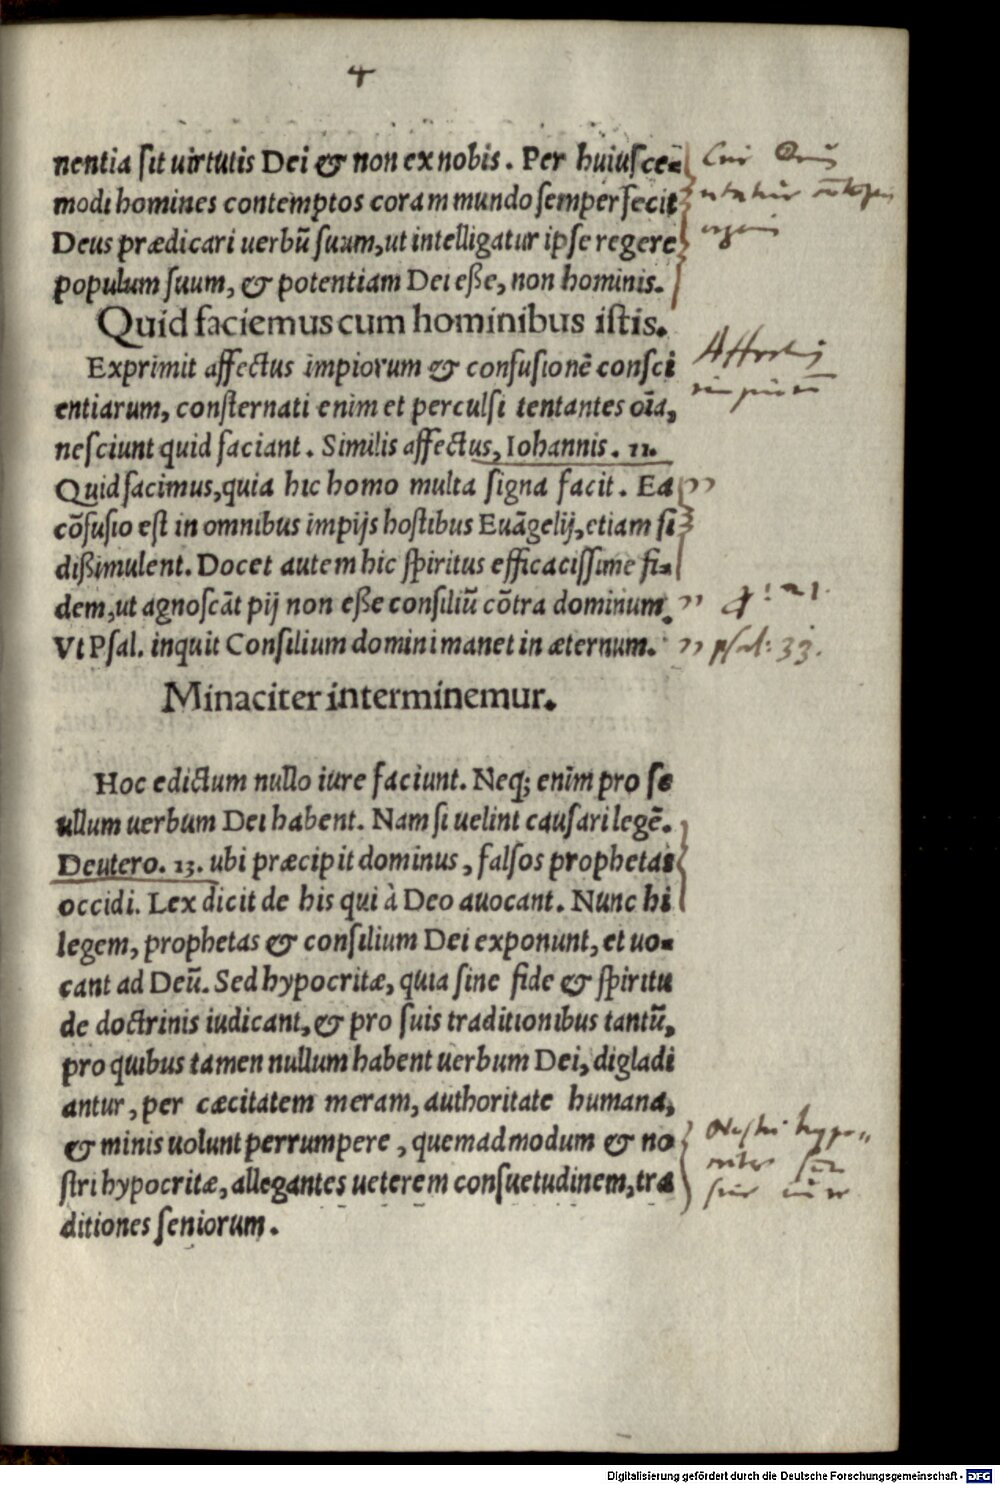 4
nentia sit uirtutis Dei & non ex nobis. Per huiusce-
modi homines contemptos coram mundo semper fecit
Deus prædicari uerbū suum, ut intelligatur ipse regere
populum suum, & potentiam Dei eße, non hominis.
Quid faciemus cum hominibus istis.
Exprimit affectus impiorum & confusionē consci
entiarum, consternati enim et perculsi tentantes oīa,
nesciunt quid faciant. Similis affectus, Iohannis. 11.
Quid facimus, quia hic homo multa signa facit. Ea
cōfusio est in omnibus impijs hostibus Euāgelij, etiam si
dißimulent. Docet autem hic spiritus efficacissime fi-
dem, ut agnoscāt pij non eße consiliū cōtra dominum.
Vt Psal. inquit Consilium domini manet in æternum.
psal: 33.
Minaciter interminemur.
Hoc edictum nullo iure faciunt. Neq; enim pro se
ullum uerbum Dei habent. Nam si uelint causari legē.
Deutero. 13. ubi præcipit dominus, falsos prophetas
occidi. Lex dicit de his qui à Deo auocant. Nunc hi
legem, prophetas & consilium Dei exponunt, et uo-
cant ad Deū. Sed hypocritæ, quia sine fide & spiritu
de doctrinis iudicant, & pro suis traditionibus tantū,
pro quibus tamen nullum habent uerbum Dei, digladi
antur, per cæcitatem meram, authoritate humana,
& minis uolunt perrumpere, quemadmodum & no
stri hypocritæ, allegantes ueterem consuetudinem, tra
ditiones seniorum.
Digitalisierung gefördert durch die Deutsche Forschungsgemeinschaft - DFG